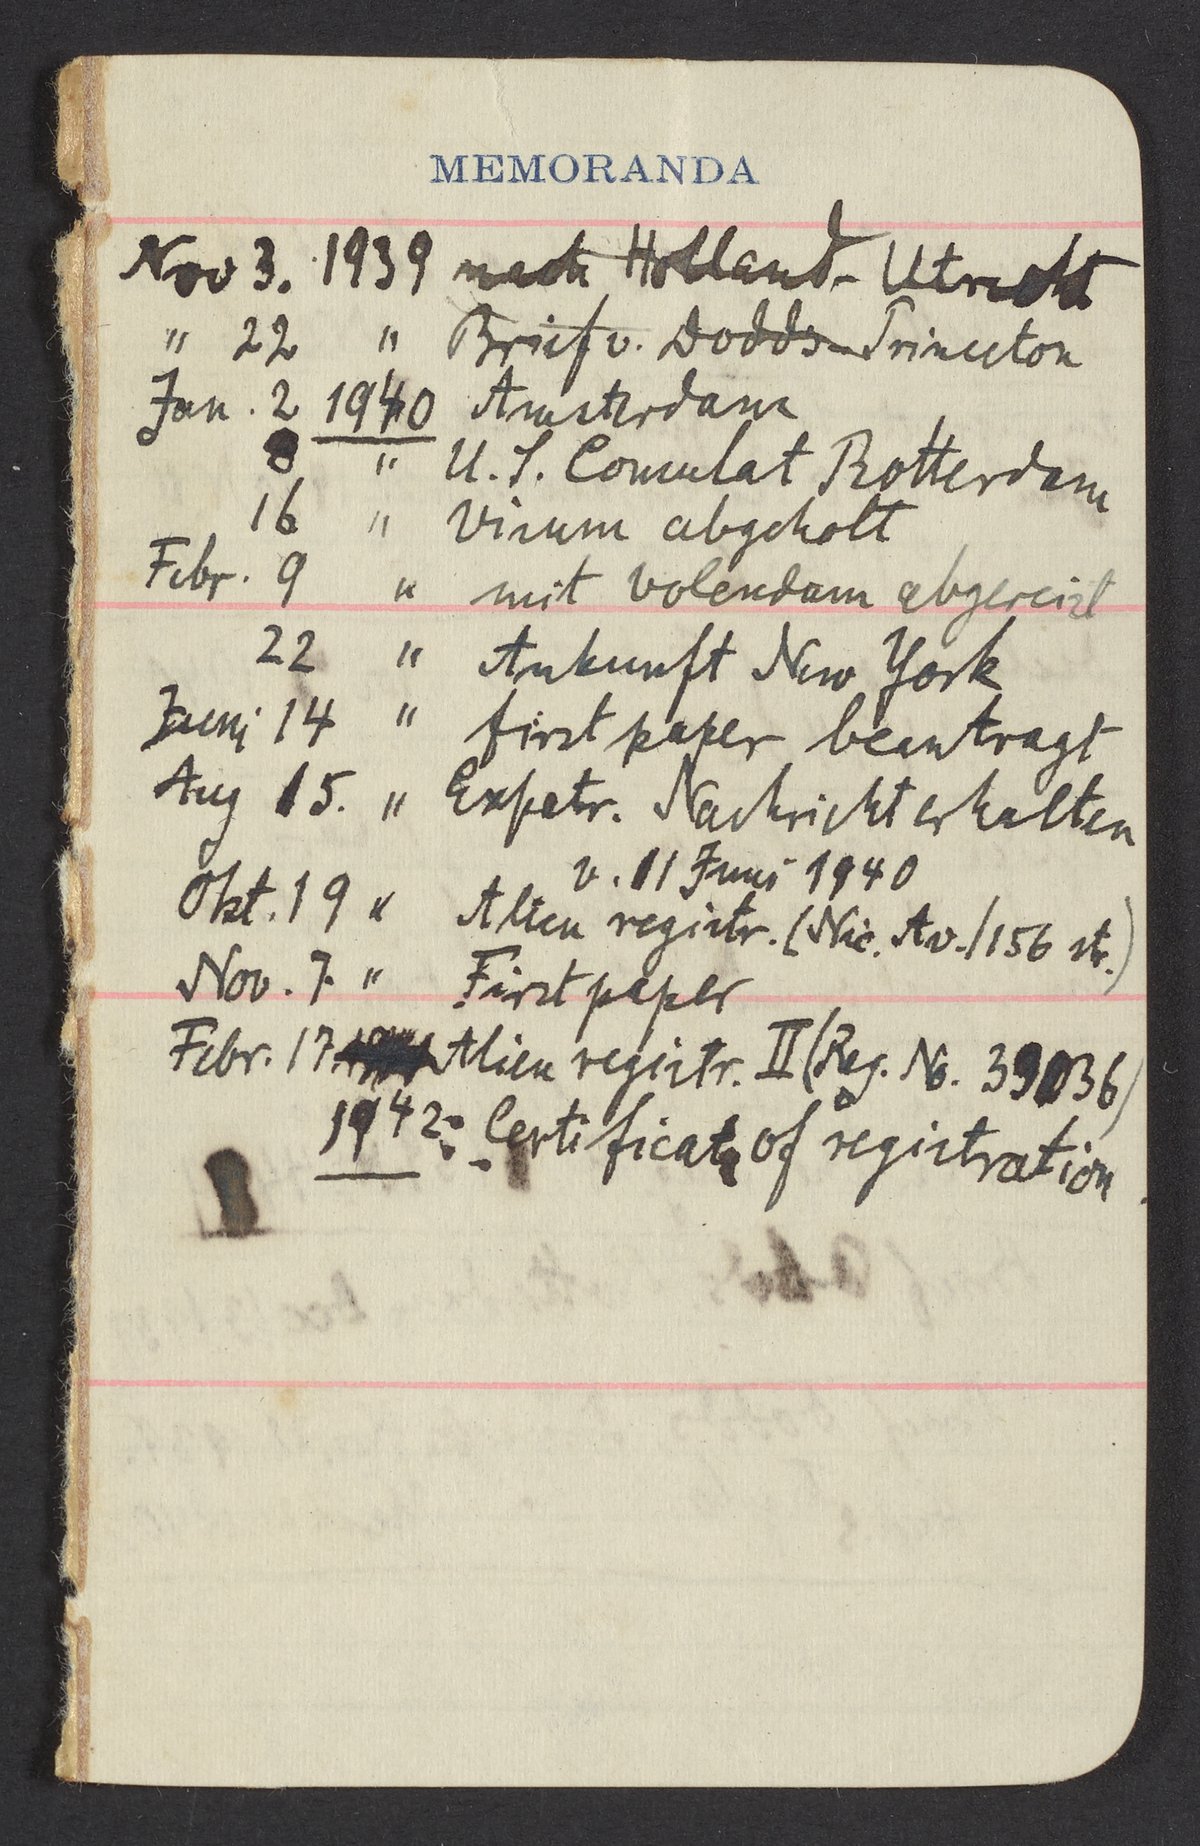 MEMORANDA
Nov 3. 1939 nach Holland - Utrecht
" 22 " Brief v. Dodds - Princeton
Jan. 2 1940 Amsterdam
8 " U.S. Consulat Rotterdam
16 " Visum abgeholt
Febr. 9 " mit Volendam abgereist
22 " Ankunft New York
Juni 14 " first paper beantragt
Aug 15. " Expatr. Nachricht erhalten
v. 11 Juni 1940
Okt. 19 " Alien registr. (Nic. Av./156 str.)
Nov. 7 " First paper
Febr. 17. Alien registr. II (Reg. No. 39036)
1942: Certificate of registration